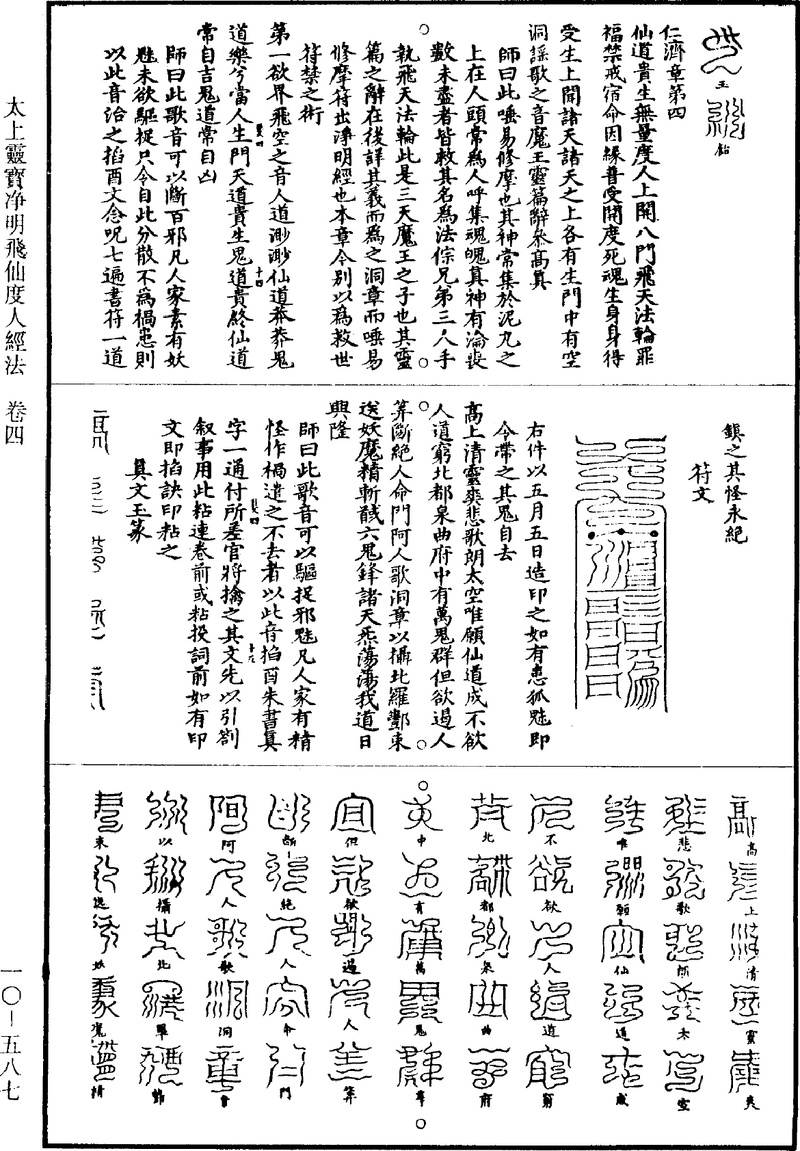 玉
仁濟章第四
仙道貴生無量度人上開八門飛天法輪罪
福禁戒宿命因緣普受開度死魂生身身得
受生上聞諸天諸天之上各有生門中有空
洞謠歌之音魔王靈篇辭參高真
師曰此唾易修摩也其神常集於泥丸之
上在人頭常為人呼集魂魄真神有淪喪
數未盡者皆救其名為法倧兄弟三人手
執飛天法輪此是三天魔王之子也其靈
篇之辭在後詳其義而為之洞章而唾易
修摩符出淨明經也本章今別以為救世
符禁之術
第一欲界飛空之音人道渺渺仙道莽莽鬼
道樂兮當人生門天道貴生鬼道貴終仙道
常自吉鬼道常自凶
師曰此歌音可以斷百邪凡人家素有妖
魅未欲驅捉只令自此分散不為禍患則
以此音治之掐酉文念呪七遍書符一道
鎮之其怪永絕
符文
右件以五月五日造印之如有患狐魅即
令帶之其鬼自去
高上清靈爽悲歌朗太空唯願仙道成不欲
人道窮北都泉曲府中有萬鬼群但欲遏人
算斷絕人命門阿人歌洞章以攝北羅酆束
送妖魔精斬馘六鬼鋒諸天炁蕩蕩我道日
興隆
師曰此歌音可以驅捉邪魅凡人家有精
怪作禍遣之不去者以此音掐酉朱書真
字一通付所差官將擒之其文先以引劄
叙事用此粘連卷前或粘投詞前如有印
文即掐訣印粘之
真文玉篆
高上清靈爽
悲歌朗太空
唯願仙道成
不欲人道窮
北都泉曲府
中有萬鬼羣
但欲遏人算
斷絕人命門
阿人歌洞章
以攝北羅酆
束送妖魔精
太上靈寶净明飛仙度人經法 卷四
一〇-五八七